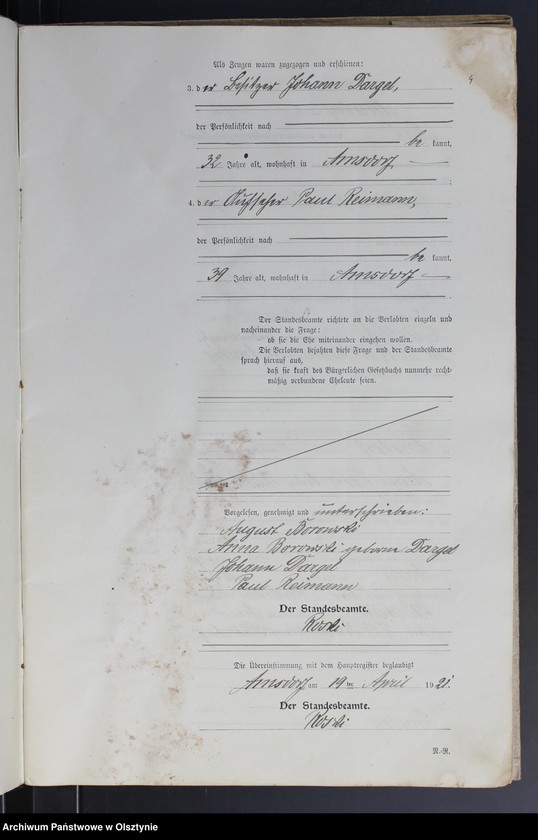 Als Zeugen waren zugezogen und erschienen:
3. der Besitzer Johann Dargel,
der Persönlichkeit nach
be kannt,
32 Jahre alt, wohnhaft in Arnsdorf
4. der Aufseher Paul Reimann,
der Persönlichkeit nach
be kannt,
39 Jahre alt, wohnhaft in Arnsdorf
Der Standesbeamte richtete an die Verlobten einzeln und
nacheinander die Frage:
ob sie die Ehe miteinander eingehen wollen.
Die Verlobten bejahten diese Frage und der Standesbeamte
sprach hierauf aus,
daß sie kraft des Bürgerlichen Gesetzbuchs nunmehr recht-
mäßig verbundene Eheleute seien.
Vorgelesen, genehmigt und unterschrieben:
August Borowski
Anna Borowski geborne Dargel
Johann Dargel
Paul Reimann
Der Standesbeamte.
Roski
Die Übereinstimmung mit dem Hauptregister beglaubigt
Arnsdorf am 19 ten April 1921.
Der Standesbeamte.
Roski
N.-R.
Archiwum Państwowe w Olsztynie